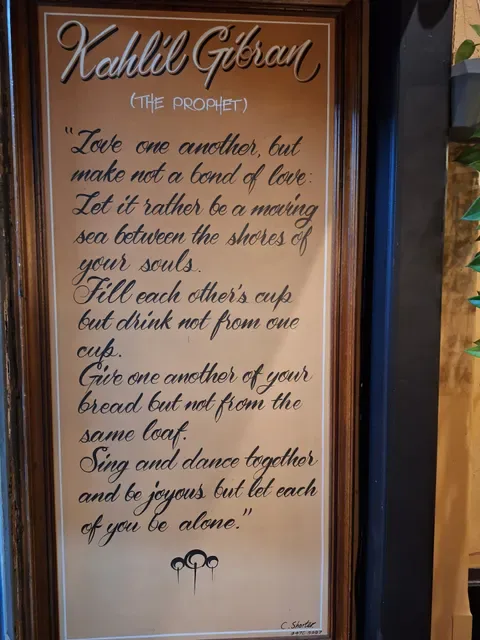 Kahlil Gibran
(THE PROPHET)
"Love one another, but
make not a bond of love:
Let it rather be a moving
sea between the shores of
your souls.
Fill each other's cup
but drink not from one
cup.
Give one another of your
bread but not from the
same loaf.
Sing and dance together
and be joyous, but let each
of you be alone."
C. Shorter